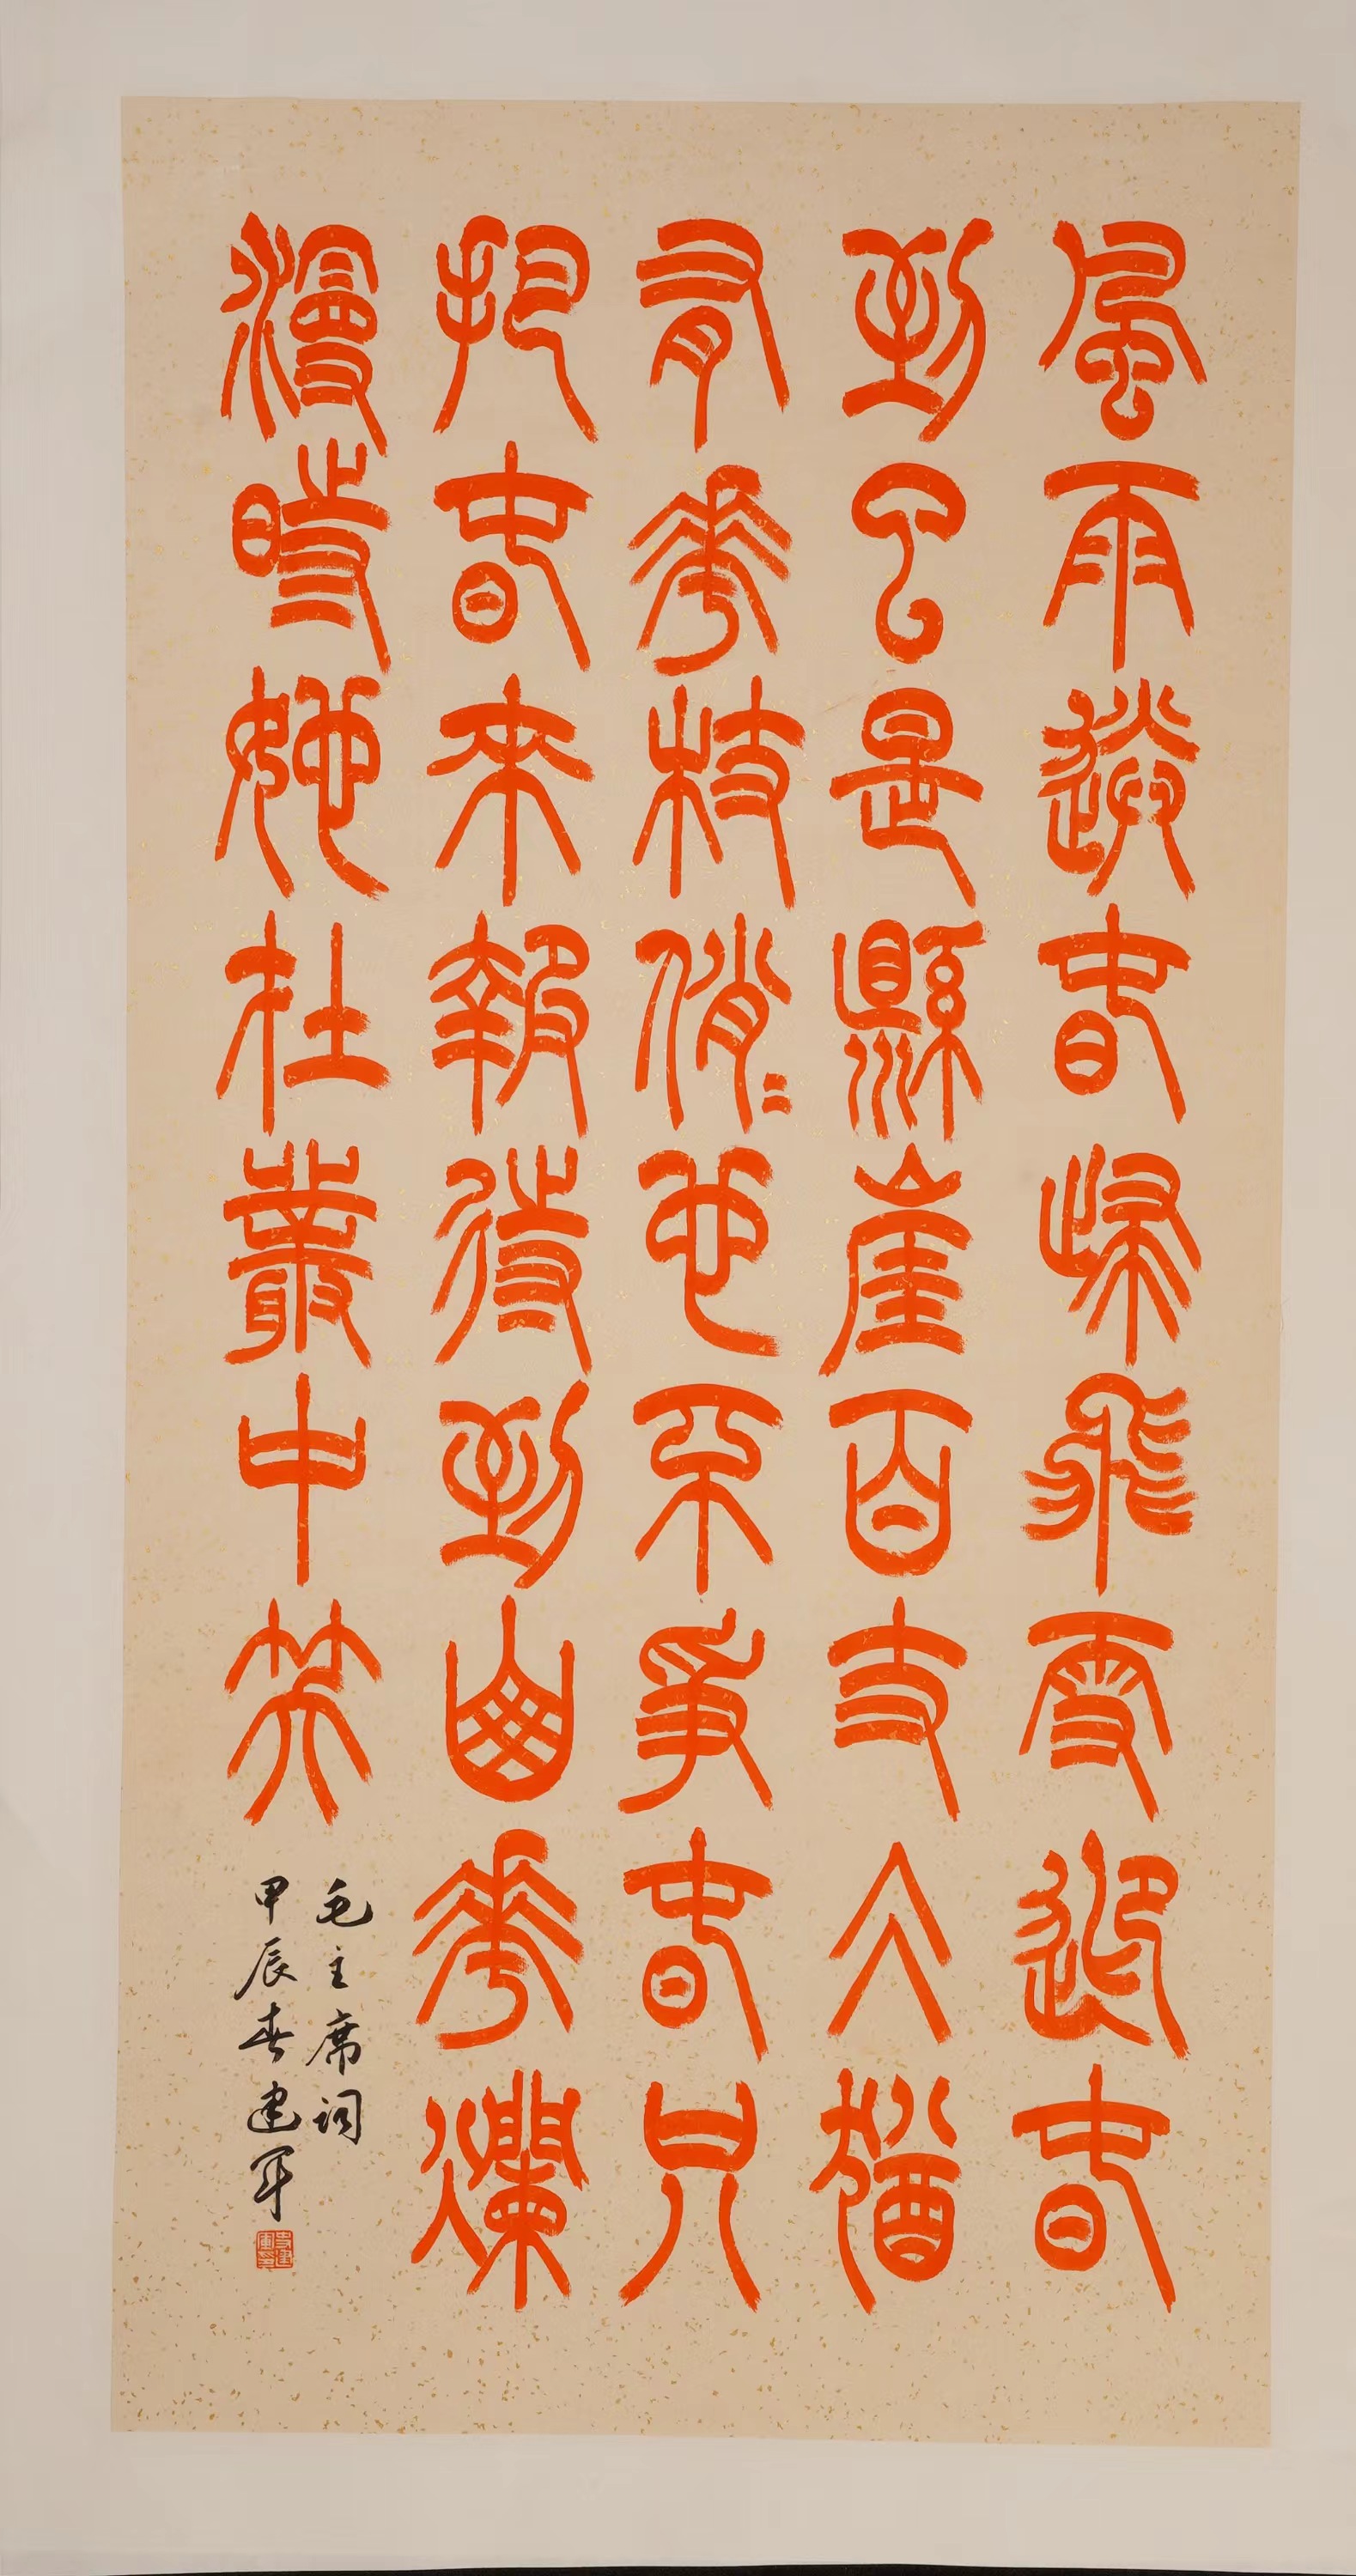 風雨送春歸飛雪迎春
到已是縣崖百丈冰猶
有花枝俏〻也不爭春只
把春來報待到山花爛
漫時她在叢中笑
毛主席词
甲辰春建军